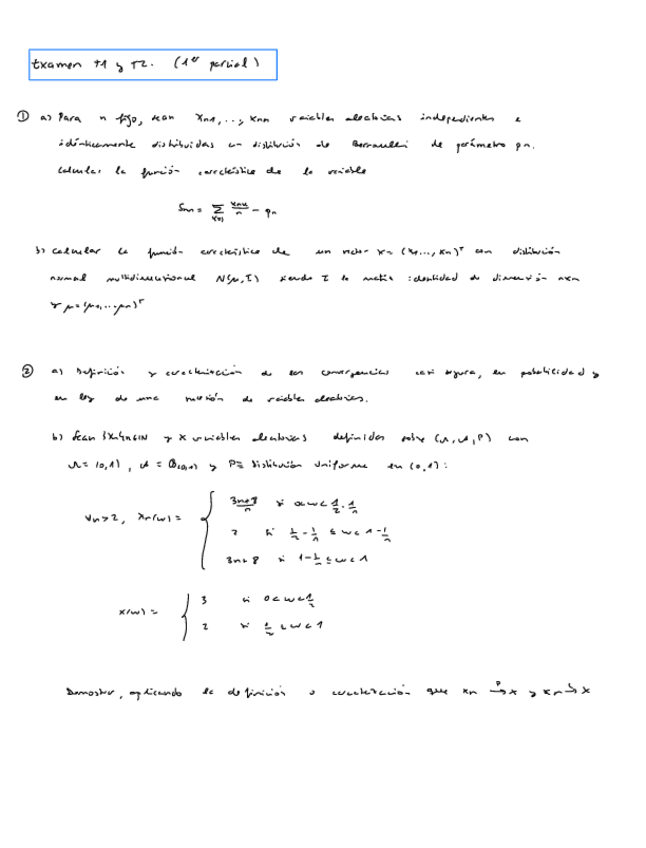 Examen T1 y T2. (1er parcial)
① a) Para n fijo, sean Xn1, ..., Xnn variables aleatorias independientes e
idénticamente distribuidas con distribución de Bernoulli de parámetro pn.
Calcular la función característica de la variable
Snn = Σ Xnk/n - pn
b) Calcular la función característica de un vector X = (X1,..., Xn)^T con distribución
normal multidimensional N(μ, I) siendo I la matriz identidad de dimensión nxn
y μ = (μ1,...μn)^T
② a) Definición y caracterización de las convergencias casi segura, en probabilidad y
en ley de una sucesión de variables aleatorias.
b) Sean {Xn}n∈IN y X variables aleatorias definidas sobre (Ω, A, P) con
Ω = (0,1), A = B(0,1) y P ≡ Distribución Uniforme en (0,1):
∀n>2, Xn(w) = { (3n+8)/n si 0<w<1/2 - 1/n
2 si 1/2 - 1/n ≤ w < 1 - 1/n
3n+8 si 1 - 1/n ≤ w < 1
X(w) = { 3 si 0<w<1/2
2 si 1/2 ≤ w < 1
Demostrar, aplicando la definición o caracterización que Xn →P X y Xn →L X